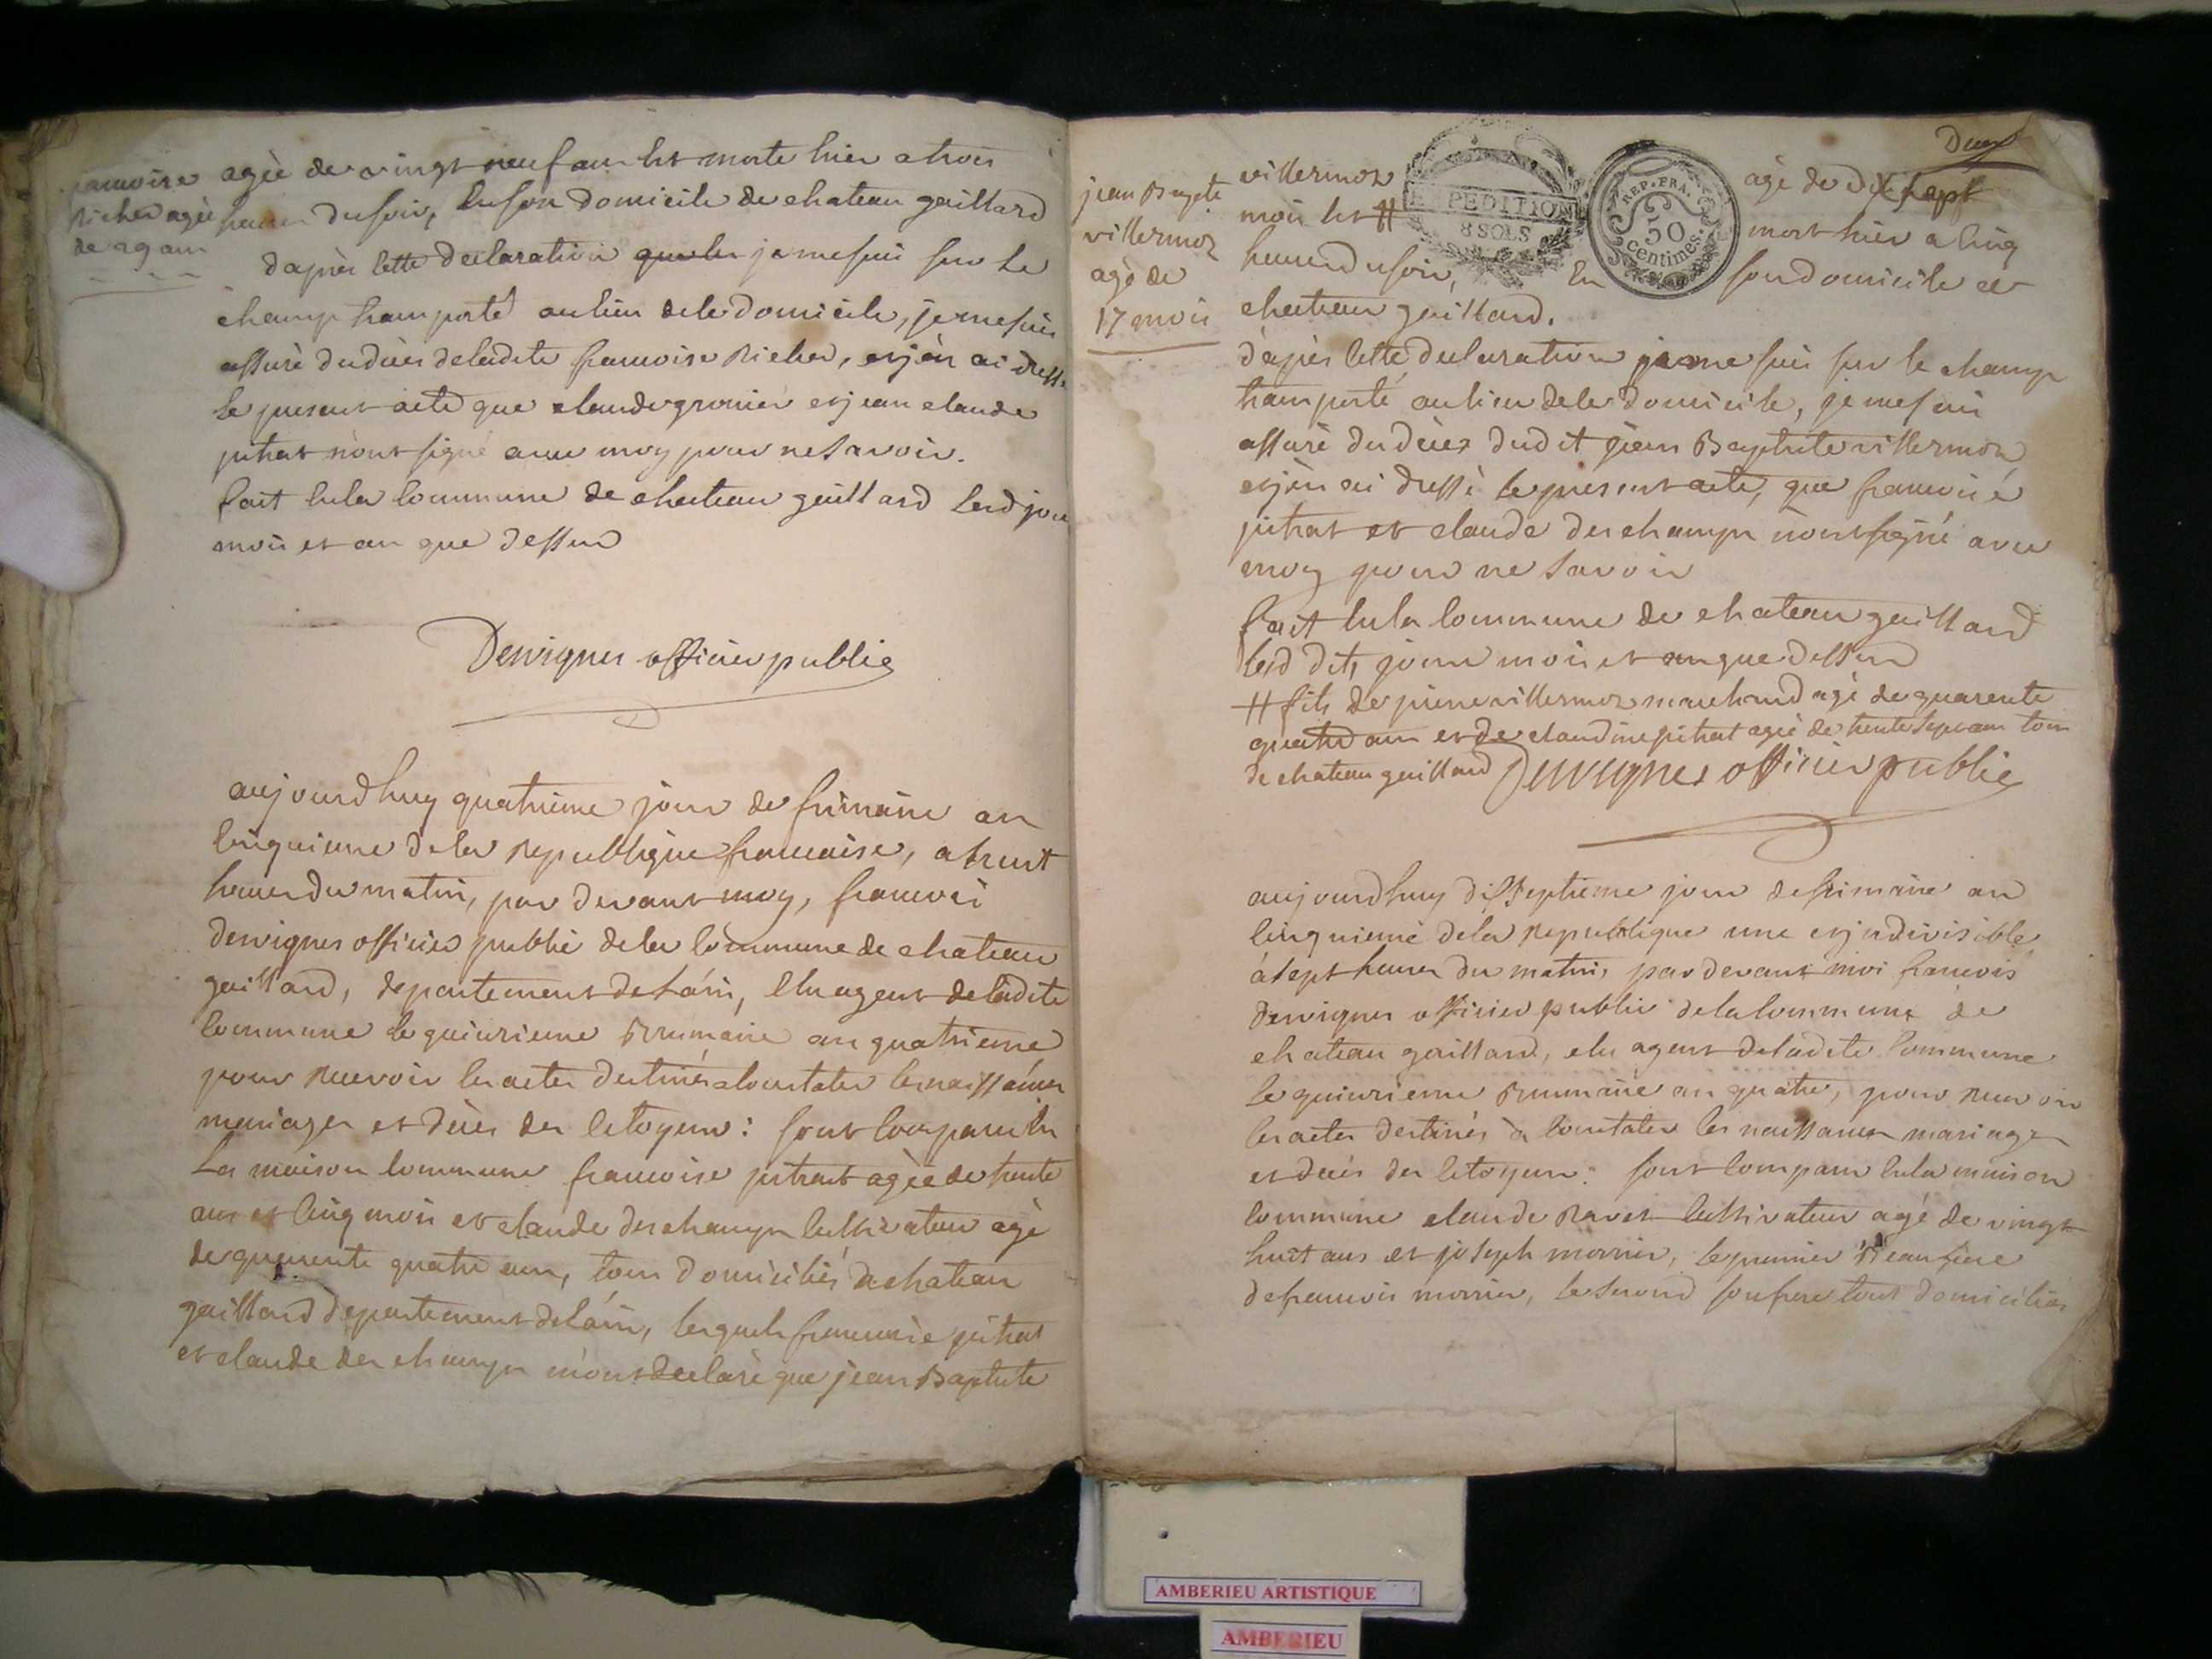 francoise
Richer agée
de 29 ans
agée de vingt neuf ans est morte hier a trois
heures du soir, en son domicile de chateau gaillard
d'après cette declaration que les je me suis sur le
champ transporté au lieu de le domicile, je me suis
assuré du décès de ladite francoise Richer, et j'en ai dressé
le present acte que claude gronier et jean claude
pitrat n'ont signé avec moy pour ne savoir.
fait en la commune de chateau gaillard lesd jour
mois et an que dessus
Dervignes officier public
aujourdhuy quatrieme jour de frimaire an
cinquieme de la Republique francaise, a huit
heures du matin, par devant moy, francois
dervignes officier public de la commune de chateau
gaillard, departement de Lain, elu agent de ladite
commune le quinzieme Brumaire an quatrieme
pour recevoir les actes destinés a constater les naissances
mariages et décès des citoyens: sont comparu en
La maison commune francoise pitrat agée de trente
ans et cinq mois et claude deschamps cultivateur agé
de quarente quatre ans, tous domiciliés a chateau
gaillard departement de lain, lesquels francoise pitrat
et claude deschamps m'ont declaré que jean Baptiste
Deux
jean Bapte
villermoz
agé de
17 mois
villermoz agé de dix sept
mois est # mort hier a cinq
heures du soir, en son domicile de
chateau gaillard.
EXPEDITION
8 SOLS
REP. FRA.
50
centimes.
d'après cette declaration je me suis sur le champ
transporté au lieu de le domicile, je me suis
assuré du décès dudit jean Baptiste villermoz
et j'en ai dressé le present acte, que francoise
pitrat et claude deschamps n'ont signé avec
moy pour ne savoir
fait en la commune de chateau gaillard
lesd dits jour mois et an que dessus
# fils de pierre villermoz marchand agé de quarente
quatre ans et de claudine pitrat agée de trente sept ans tous
de chateau gaillard Dervignes officier public
aujourdhuy dix septieme jour de frimaire an
cinquieme de la Republique une et indivisible
à sept heures du matin, par devant moi francois
dervignes officier public de la commune de
chateau gaillard, elu agent de ladite commune
le quinzieme Brumaire an quatre, pour recevoir
les actes destinés à constater les naissances mariages
et décès des citoyens: sont comparu en la maison
commune claude Ravet cultivateur agé de vingt
huit ans et joseph monier, le premier Beaufrere
de francois monier, le second son frere tous domiciliés
AMBERIEU ARTISTIQUE
AMBERIEU